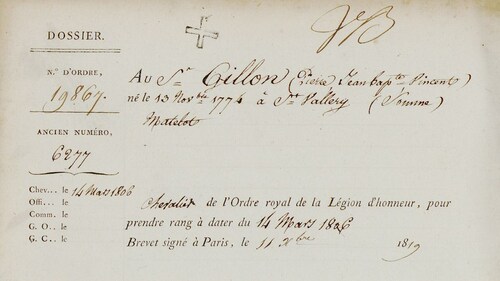 DOSSIER.
N.º D'ORDRE,
19867.
ANCIEN NUMÉRO,
6277
Chev... le 14 Mars 1806
Offi... le
Comm. le
G. O.. le
G. C.. le
Au Sr Gillon (Pierre Jean Bapte Vincent)
né le 13 Novbre 1774 à St Vallery (Somme)
Matelot
Chevalier de l'Ordre royal de la Légion d'honneur, pour
prendre rang à dater du 14 Mars 1806
Brevet signé à Paris, le 11 Xbre 1819